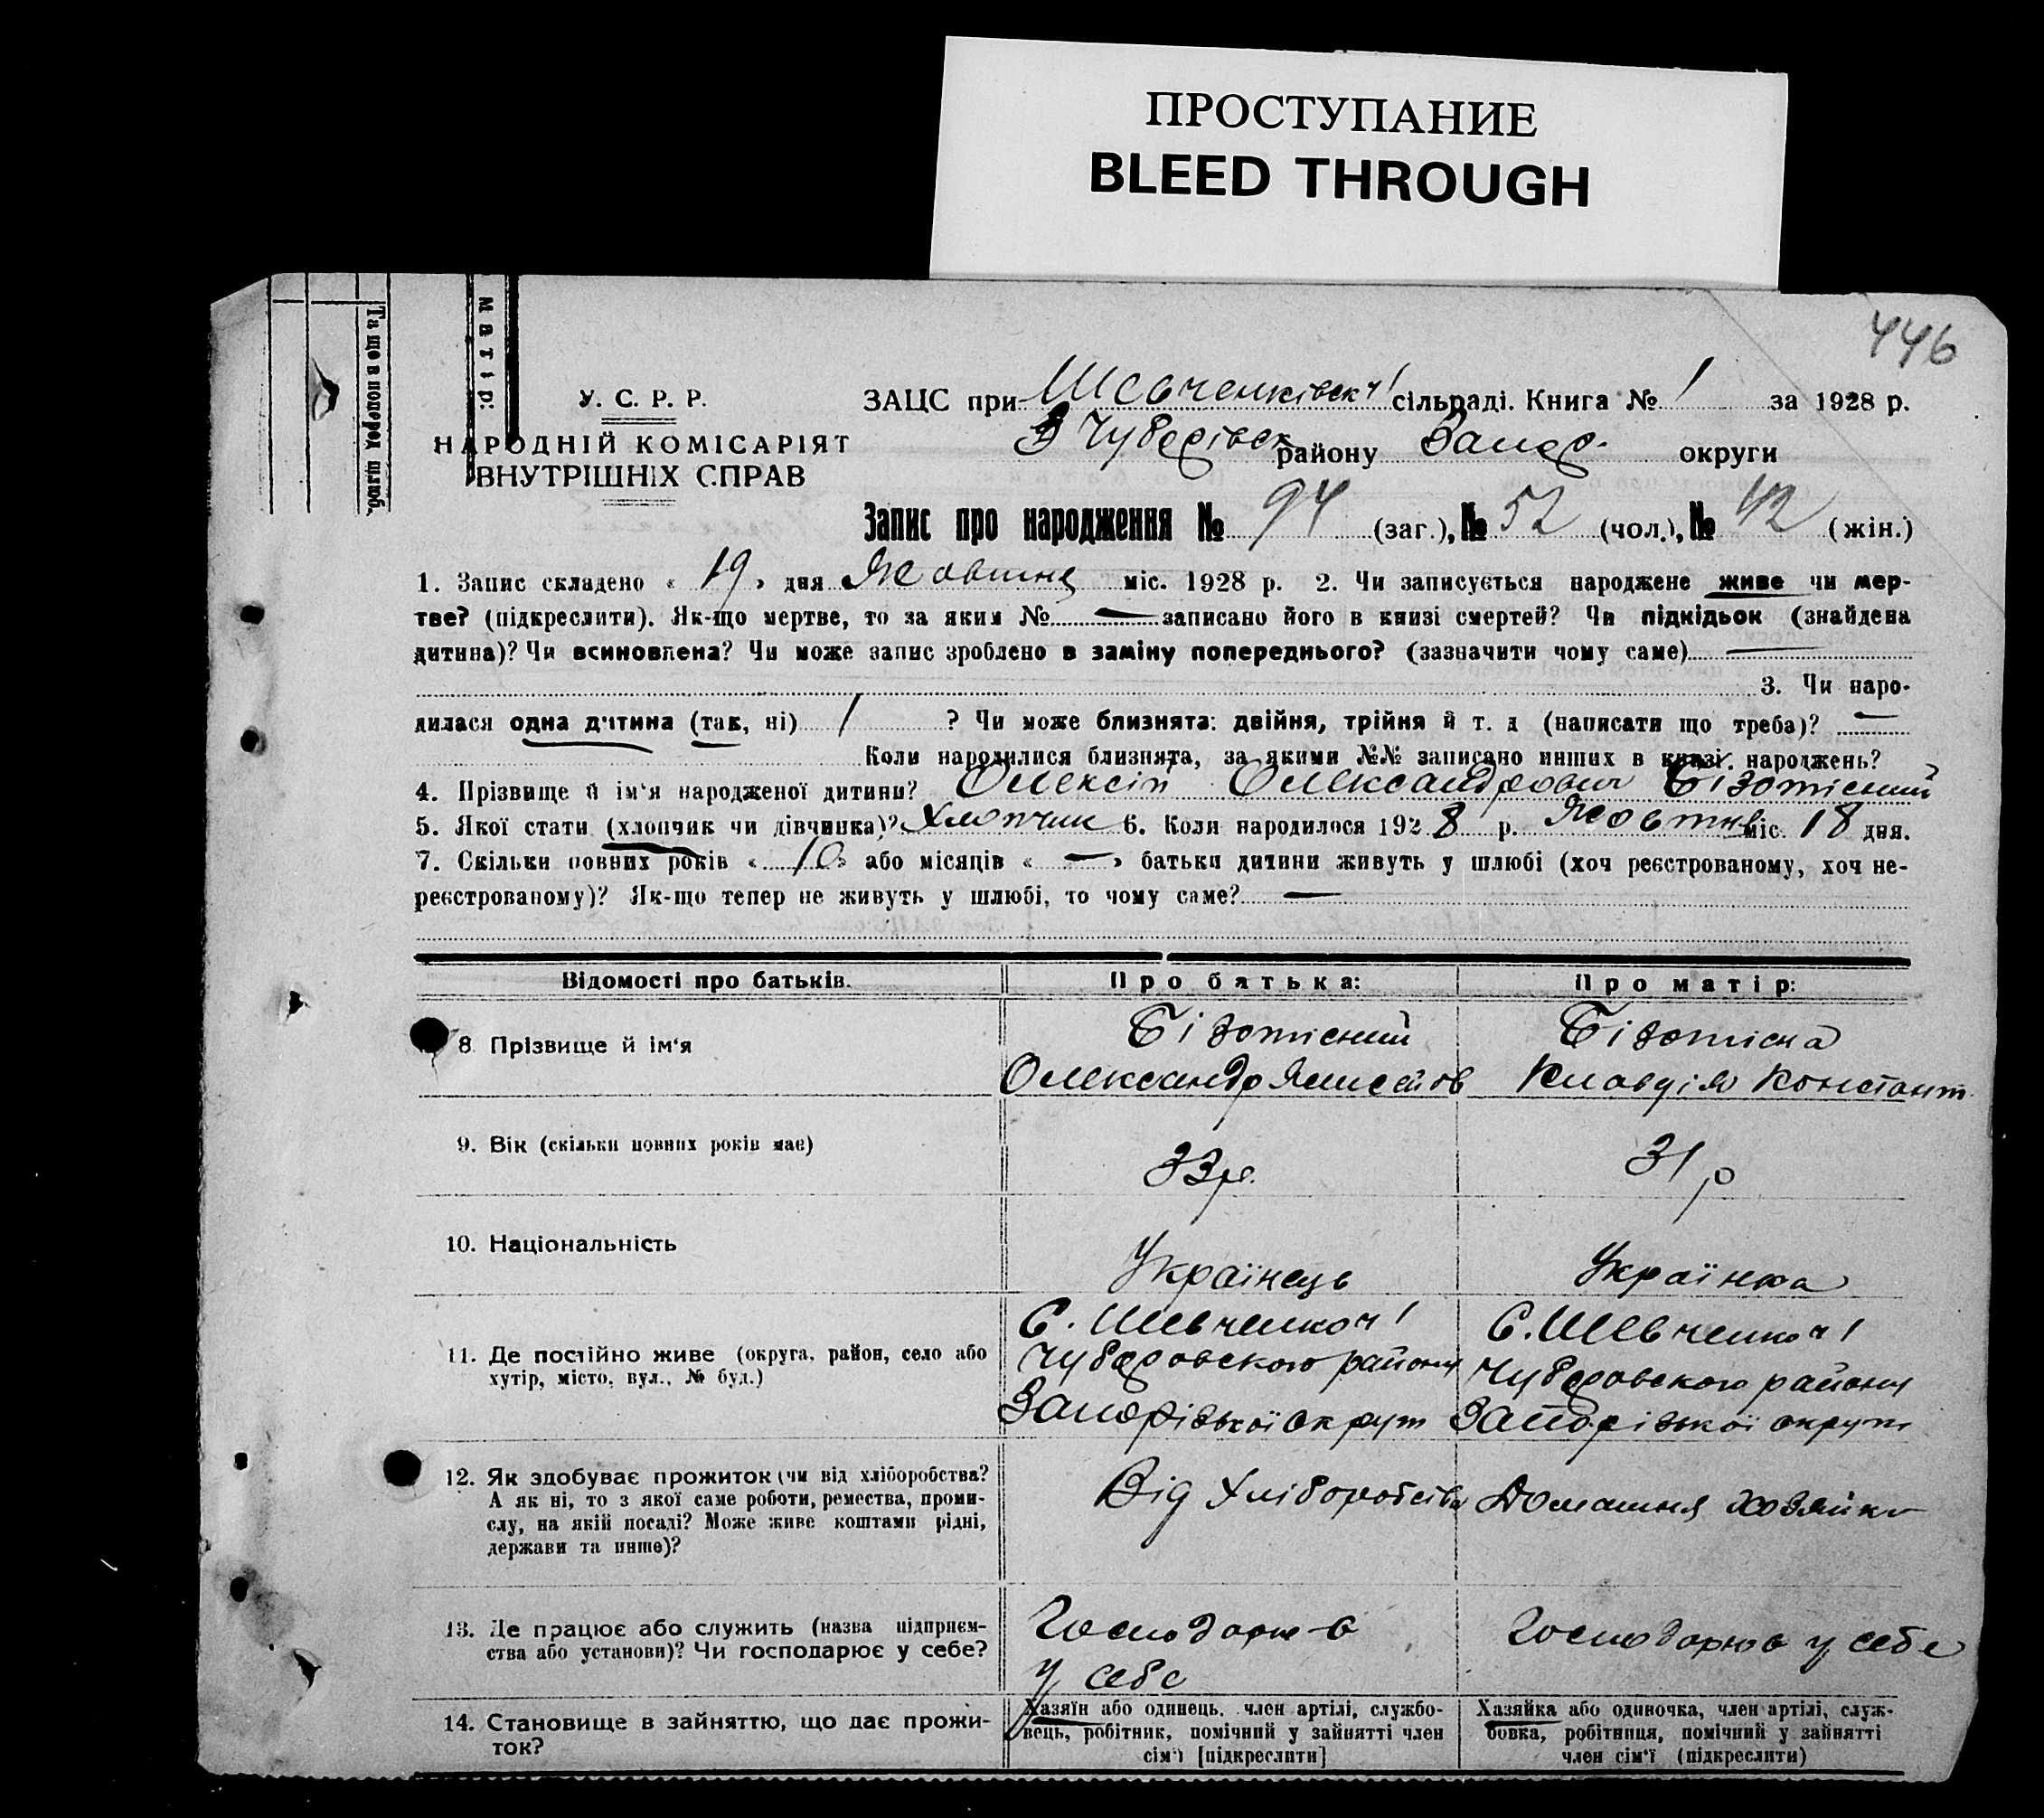 ПРОСТУПАНИЕ
BLEED THROUGH
446
Та що в попород
матір:
У. С. Р. Р.
НАРОДНІЙ КОМІСАРІЯТ
ВНУТРІШНІХ СПРАВ
ЗАЦС при Шевченківск сільраді. Книга № 1 за 1928 р.
району Запор. округи
Запис про народження № 94 (заг.), № 52 (чол.), № 42 (жін.)
1. Запис складено « 19 » дня Жовтня міс. 1928 р. 2. Чи записується народжене живе чи мер-
тве? (підкреслити). Як-що мертве, то за яким № — записано його в книзі смертей? Чи підкідьок (знайдена
дитина)? Чи всиновлена? Чи може запис зроблено в заміну попереднього? (зазначити чому саме) —
3. Чи наро-
дилася одна дитина (так, ні) 1 ? Чи може близнята: двійня, трійня й т. д (написати що треба)? —
Коли народилися близнята, за якими №№ записано инших в книзі народжень?
4. Прізвище й ім'я народженої дитини? Олексій Олександрович Бізотісний
5. Якої стати (хлопчик чи дівчинка)? Хлопчик 6. Коли народилося 1928 р. Жовтня міс. 18 дня.
7. Скільки повних років « 10 » або місяців « — » батьки дитини живуть у шлюбі (хоч реєстрованому, хоч не-
реєстрованому)? Як-що тепер не живуть у шлюбі, то чому саме? —
Відомості про батьків. Про батька: Про матір:
8. Прізвище й ім'я
Бізотісний Бізотісна
Олександр Клавдія Констант
9. Вік (скільки повних років має)
33 р. 31 р
10. Національність
Українець Українка
11. Де постійно живе (округа, район, село або
хутір, місто, вул., № буд.)
С. Шевченко ч 1 С. Шевченко ч 1
Чубаровского району Чубаровского району
Запорізької округи Запорізької округи
12. Як здобуває прожиток (чи від хліборобства?
А як ні, то з якої саме роботи, ремества, проми-
слу, на якій посаді? Може живе коштами рідні,
держави та инше)?
Від Хліборобства Домашня хозяйка
13. Де працює або служить (назва підприєм-
ства або установи)? Чи господарює у себе?
Господарює Господарює у себе
у себе
14. Становище в зайняттю, що дає прожи-
ток?
Хазяїн або одинець, член артілі, службо-
вець, робітник, помічний у зайнятті член
сім'ї [підкреслити]
Хазяйка або одиночка, член артілі, служ-
бовка, робітниця, помічний у зайнятті
член сім'ї (підкреслити)